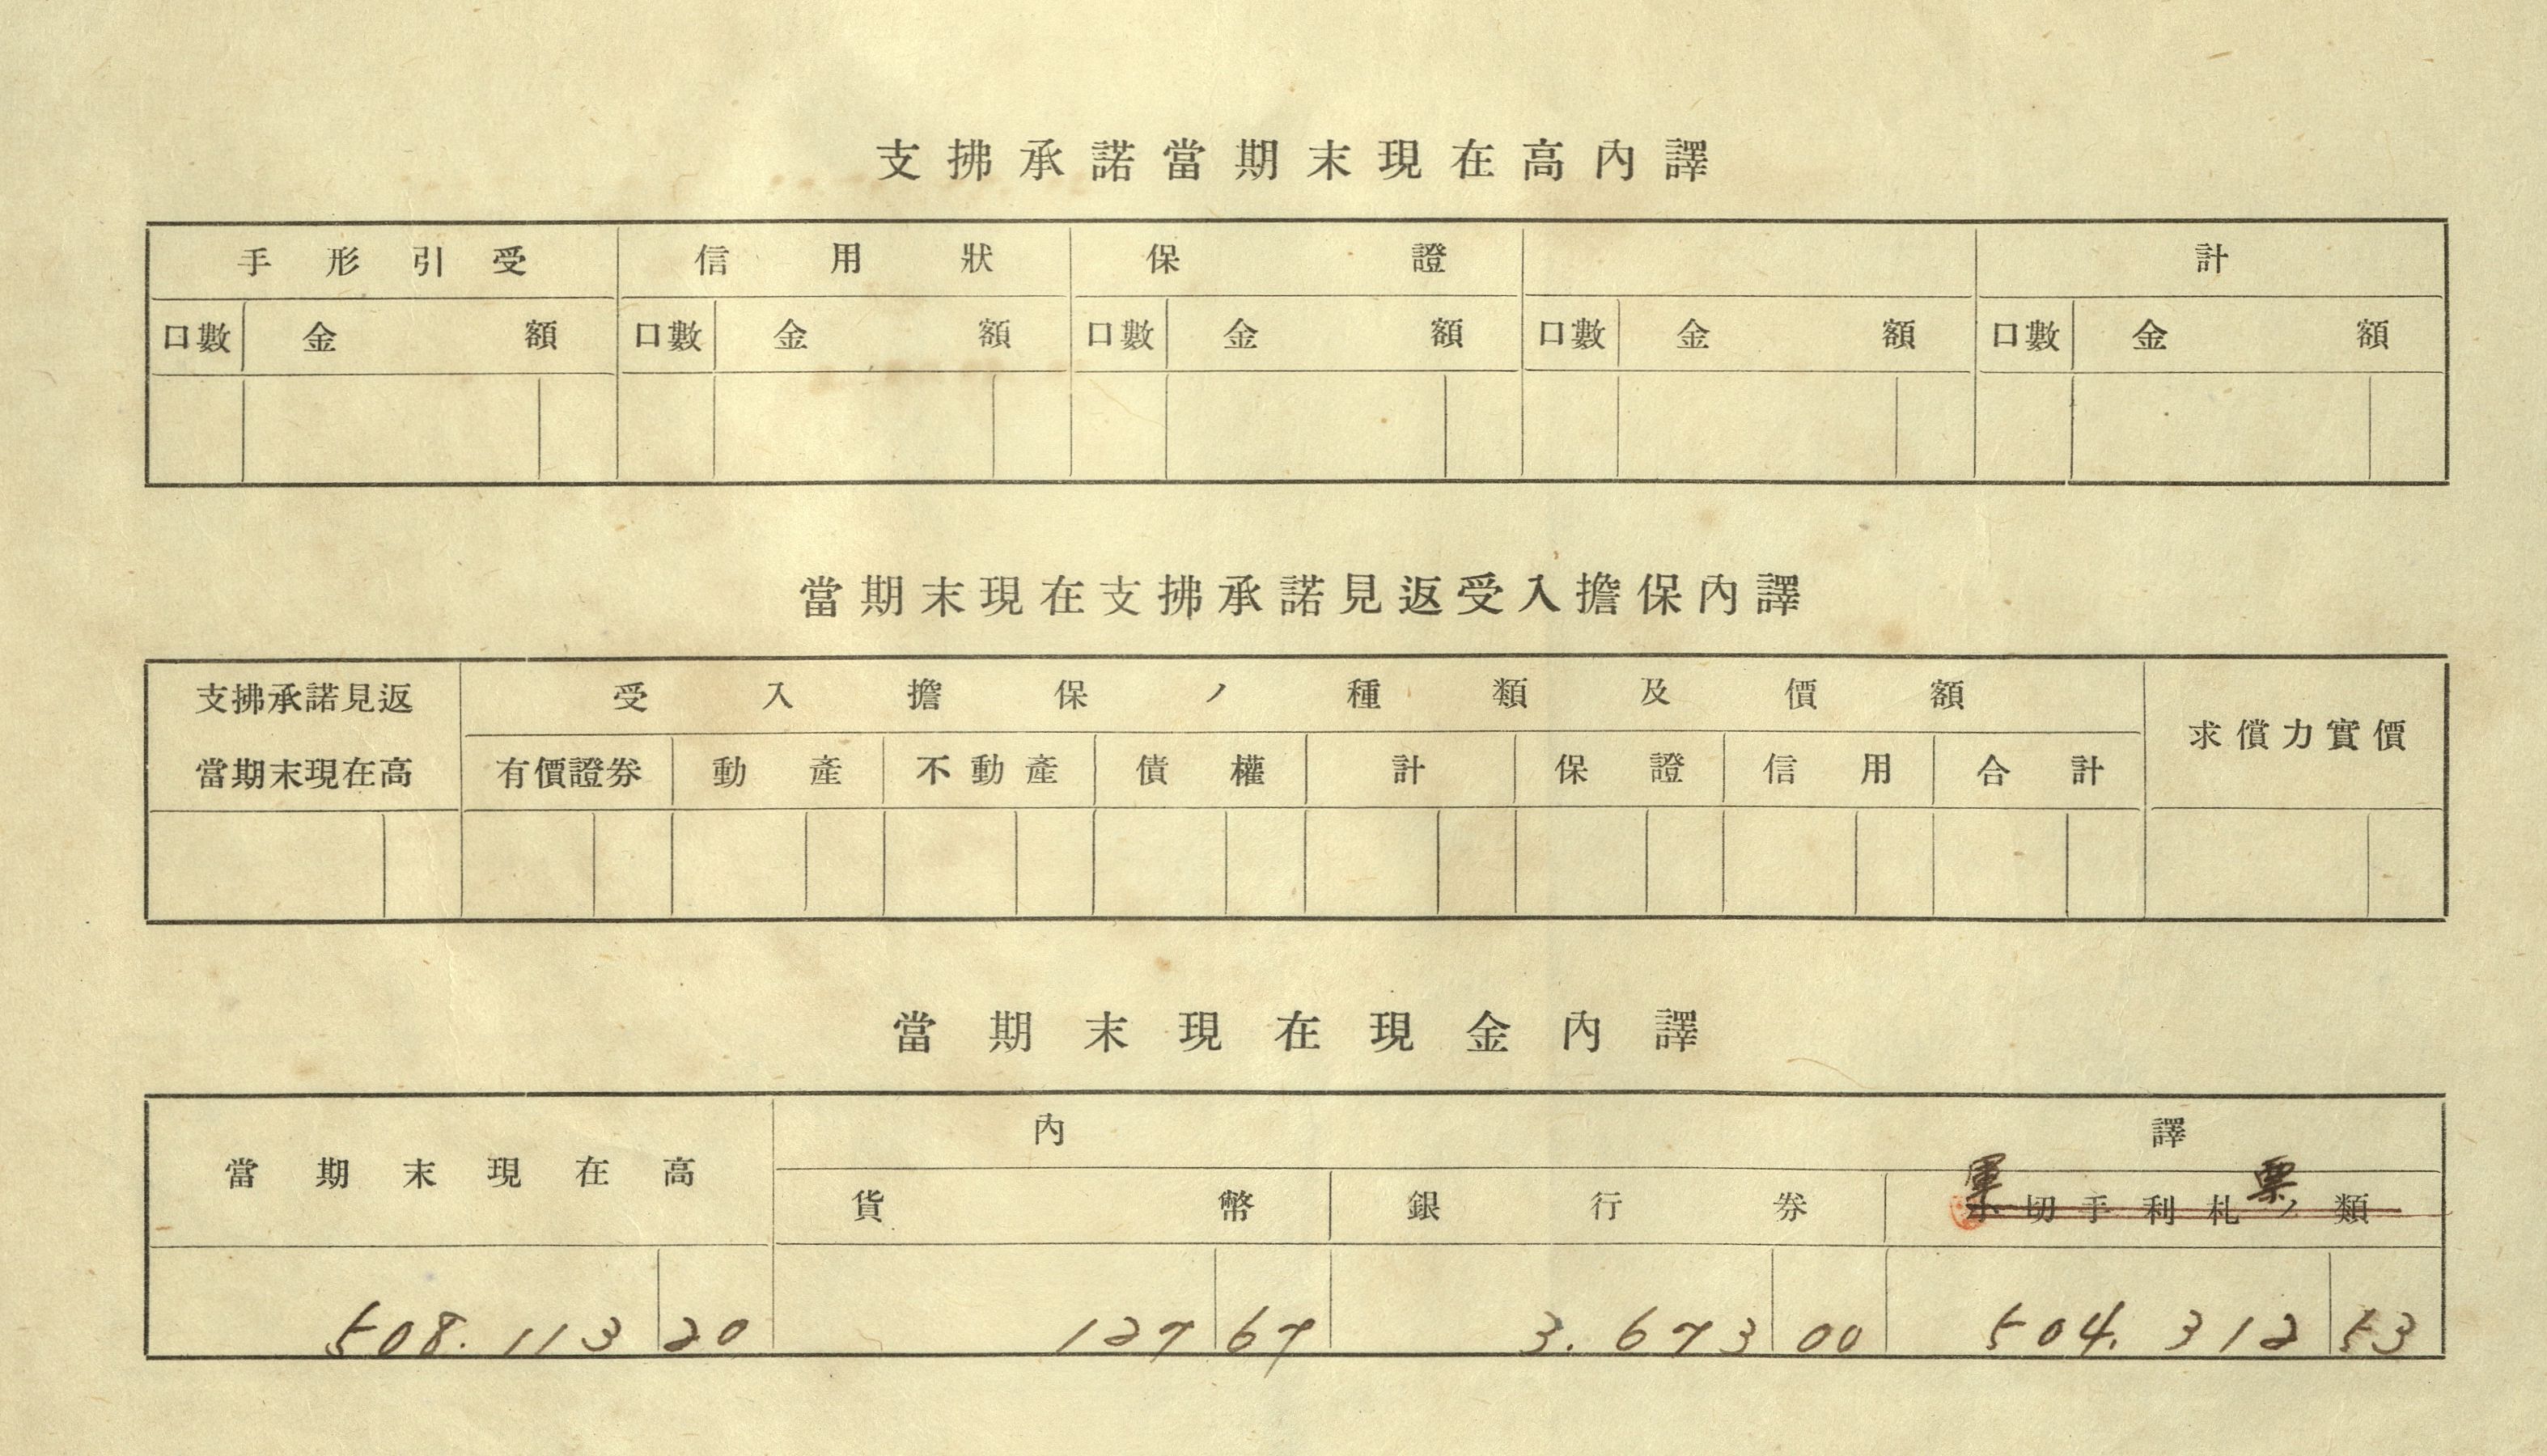 支拂承諾當期末現在高內譯
手形引受 信用狀 保證 計
口數 金額 口數 金額 口數 金額 口數 金額 口數 金額
當期末現在支拂承諾見返受入擔保內譯
支拂承諾見返 受入擔保ノ種類及價額 求償力實價
當期末現在高 有價證券 動產 不動產 債權 計 保證 信用 合計
當期末現在現金內譯
當期末現在高 內譯
軍票
貨幣 銀行券 切手利札ノ類
508.113 20 127 67 3.673 00 504.312 53